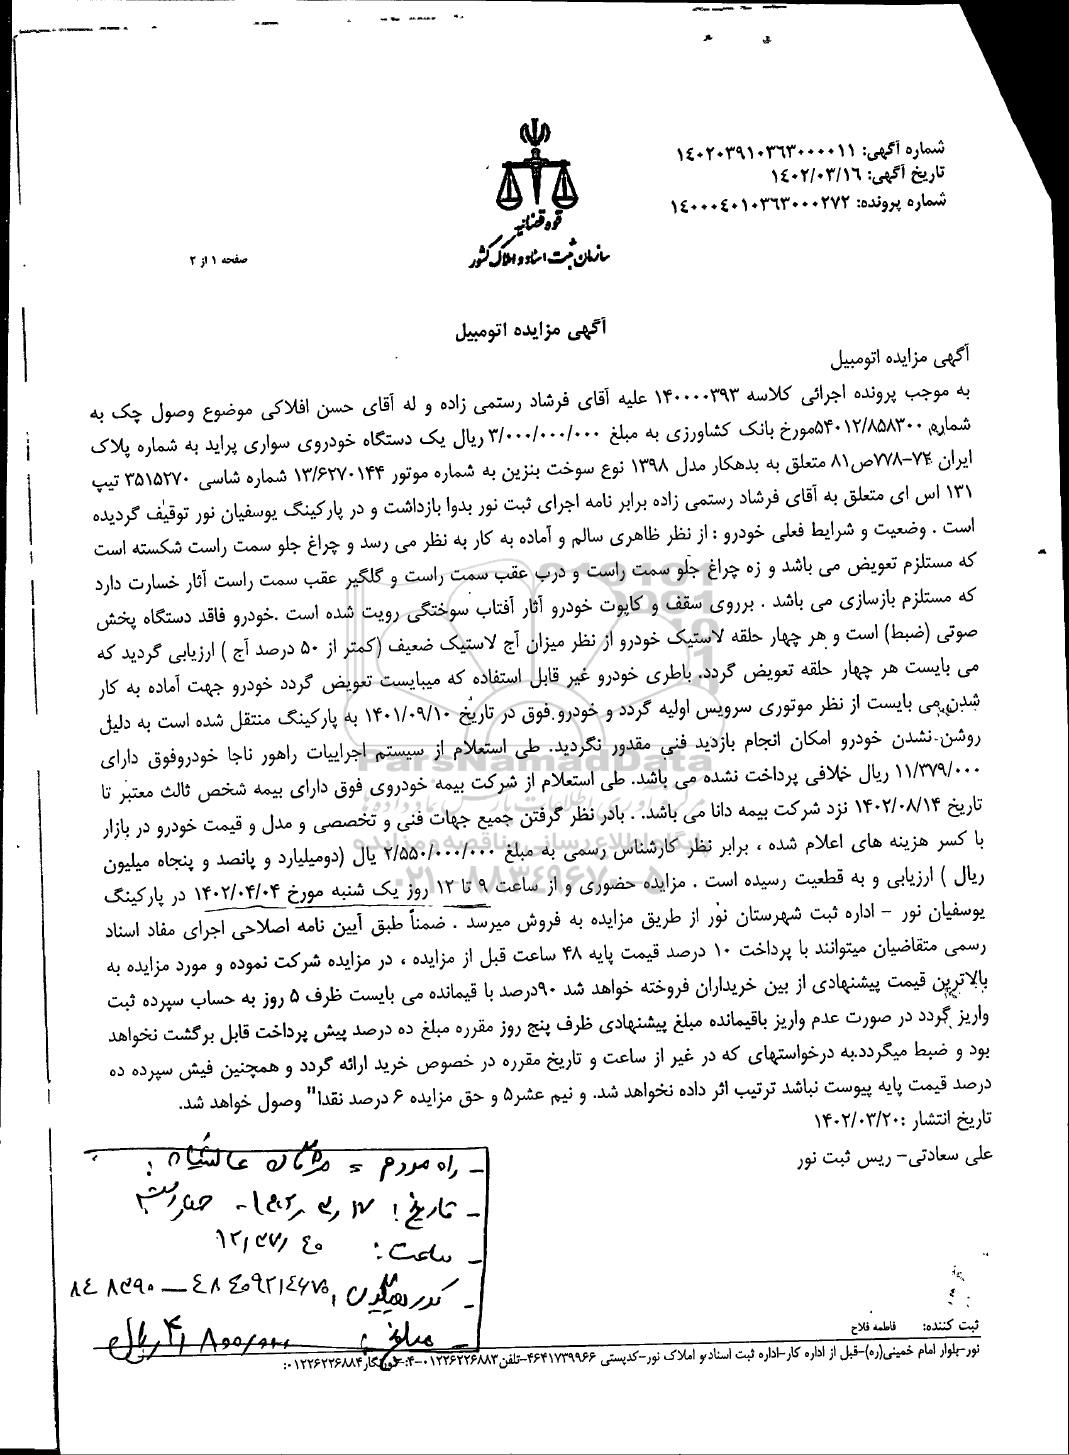 شماره آگهی: ۱۴۰۲۰۳۹۱۰۳۶۳۰۰۰۰۱۱
تاریخ آگهی: ۱۴۰۲/۰۳/۱۶
شماره پرونده: ۱۴۰۰۰۴۰۱۰۳۶۳۰۰۰۲۷۲
قوه قضائیه
سازمان ثبت اسناد و املاک کشور
صفحه ۱ از ۲
آگهی مزایده اتومبیل
آگهی مزایده اتومبیل
به موجب پرونده اجرائی کلاسه ۱۴۰۰۰۰۳۹۳ علیه آقای فرشاد رستمی زاده و له آقای حسن افلاکی موضوع وصول چک به
شماره ۵۴۰۱۲/۸۵۸۳۰۰مورخ بانک کشاورزی به مبلغ ۳/۰۰۰/۰۰۰/۰۰۰ ریال یک دستگاه خودروی سواری پراید به شماره پلاک
ایران ۷۲-۷۷۸ص۸۱ متعلق به بدهکار مدل ۱۳۹۸ نوع سوخت بنزین به شماره موتور ۱۳/۶۲۷۰۱۴۴ شماره شاسی ۳۵۱۵۲۷۰ تیپ
۱۳۱ اس ای متعلق به آقای فرشاد رستمی زاده برابر نامه اجرای ثبت نور بدوا بازداشت و در پارکینگ یوسفیان نور توقیف گردیده
است . وضعیت و شرایط فعلی خودرو : از نظر ظاهری سالم و آماده به کار به نظر می رسد و چراغ جلو سمت راست شکسته است
که مستلزم تعویض می باشد و زه چراغ جلو سمت راست و درب عقب سمت راست و گلگیر عقب سمت راست آثار خسارت دارد
که مستلزم بازسازی می باشد . برروی سقف و کاپوت خودرو آثار آفتاب سوختگی رویت شده است .خودرو فاقد دستگاه پخش
صوتی (ضبط) است و هر چهار حلقه لاستیک خودرو از نظر میزان آج لاستیک ضعیف (کمتر از ۵۰ درصد آج ) ارزیابی گردید که
می بایست هر چهار حلقه تعویض گردد. باطری خودرو غیر قابل استفاده که میبایست تعویض گردد خودرو جهت آماده به کار
شدن می بایست از نظر موتوری سرویس اولیه گردد و خودرو فوق در تاریخ ۱۴۰۱/۰۹/۱۰ به پارکینگ منتقل شده است به دلیل
روشن نشدن خودرو امکان انجام بازدید فنی مقدور نگردید. طی استعلام از سیستم اجراییات راهور ناجا خودروفوق دارای
۱۱/۳۷۹/۰۰۰ ریال خلافی پرداخت نشده می باشد. طی استعلام از شرکت بیمه خودروی فوق دارای بیمه شخص ثالث معتبر تا
تاریخ ۱۴۰۲/۰۸/۱۴ نزد شرکت بیمه دانا می باشد. . بادر نظر گرفتن جمیع جهات فنی و تخصصی و مدل و قیمت خودرو در بازار
با کسر هزینه های اعلام شده ، برابر نظر کارشناس رسمی به مبلغ ۲/۵۵۰/۰۰۰/۰۰۰ یال (دومیلیارد و پانصد و پنجاه میلیون
ریال ) ارزیابی و به قطعیت رسیده است . مزایده حضوری و از ساعت ۹ تا ۱۲ روز یک شنبه مورخ ۱۴۰۲/۰۴/۰۴ در پارکینگ
یوسفیان نور - اداره ثبت شهرستان نور از طریق مزایده به فروش میرسد . ضمناً طبق آیین نامه اصلاحی اجرای مفاد اسناد
رسمی متقاضیان میتوانند با پرداخت ۱۰ درصد قیمت پایه ۴۸ ساعت قبل از مزایده ، در مزایده شرکت نموده و مورد مزایده به
بالاترین قیمت پیشنهادی از بین خریداران فروخته خواهد شد ۹۰درصد با قیمانده می بایست ظرف ۵ روز به حساب سپرده ثبت
واریز گردد در صورت عدم واریز باقیمانده مبلغ پیشنهادی ظرف پنج روز مقرره مبلغ ده درصد پیش پرداخت قابل برگشت نخواهد
بود و ضبط میگردد.به درخواستهای که در غیر از ساعت و تاریخ مقرره در خصوص خرید ارائه گردد و همچنین فیش سپرده ده
درصد قیمت پایه پیوست نباشد ترتیب اثر داده نخواهد شد. و نیم عشر۵ و حق مزایده ۶ درصد نقدا" وصول خواهد شد.
تاریخ انتشار :۱۴۰۲/۰۳/۲۰
علی سعادتی- ریس ثبت نور
ParsNamadData
پایگاه اطلاع رسانی مناقصه و مزایده
۰۲۱-۸۸۳۴۹۶۷۰-۵
- تاریخ:
- ساعت:
- مبلغ: ۴,۸۰۰,۰۰۰ ریال
ثبت کننده: فاطمه فلاح
نور-بلوار امام خمینی(ره)-قبل از اداره کار-اداره ثبت اسناد و املاک نور-کدپستی ۴۶۴۱۷۳۹۹۶۶-تلفن۰۱۲۲۶۲۲۶۸۸۳